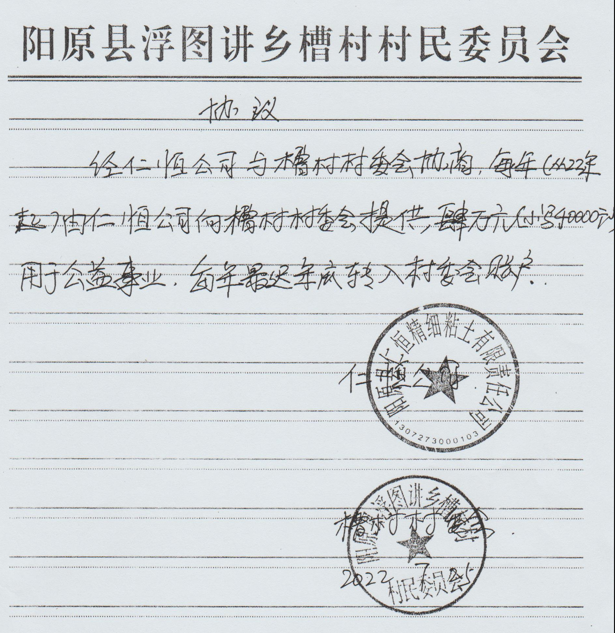 阳原县浮图讲乡槽村村民委员会
协议
经仁恒公司与槽村村委会协商,每年(从22年
起)由仁恒公司向槽村村委会提供,肆万元(小写40000元)
用于公益事业,每年最迟年底转入村委会账户.
仁恒公司
阳原县仁恒精细粘土有限责任公司
1307273000103
槽村村委会
阳原县浮图讲乡槽村
村民委员会
2022 7 25